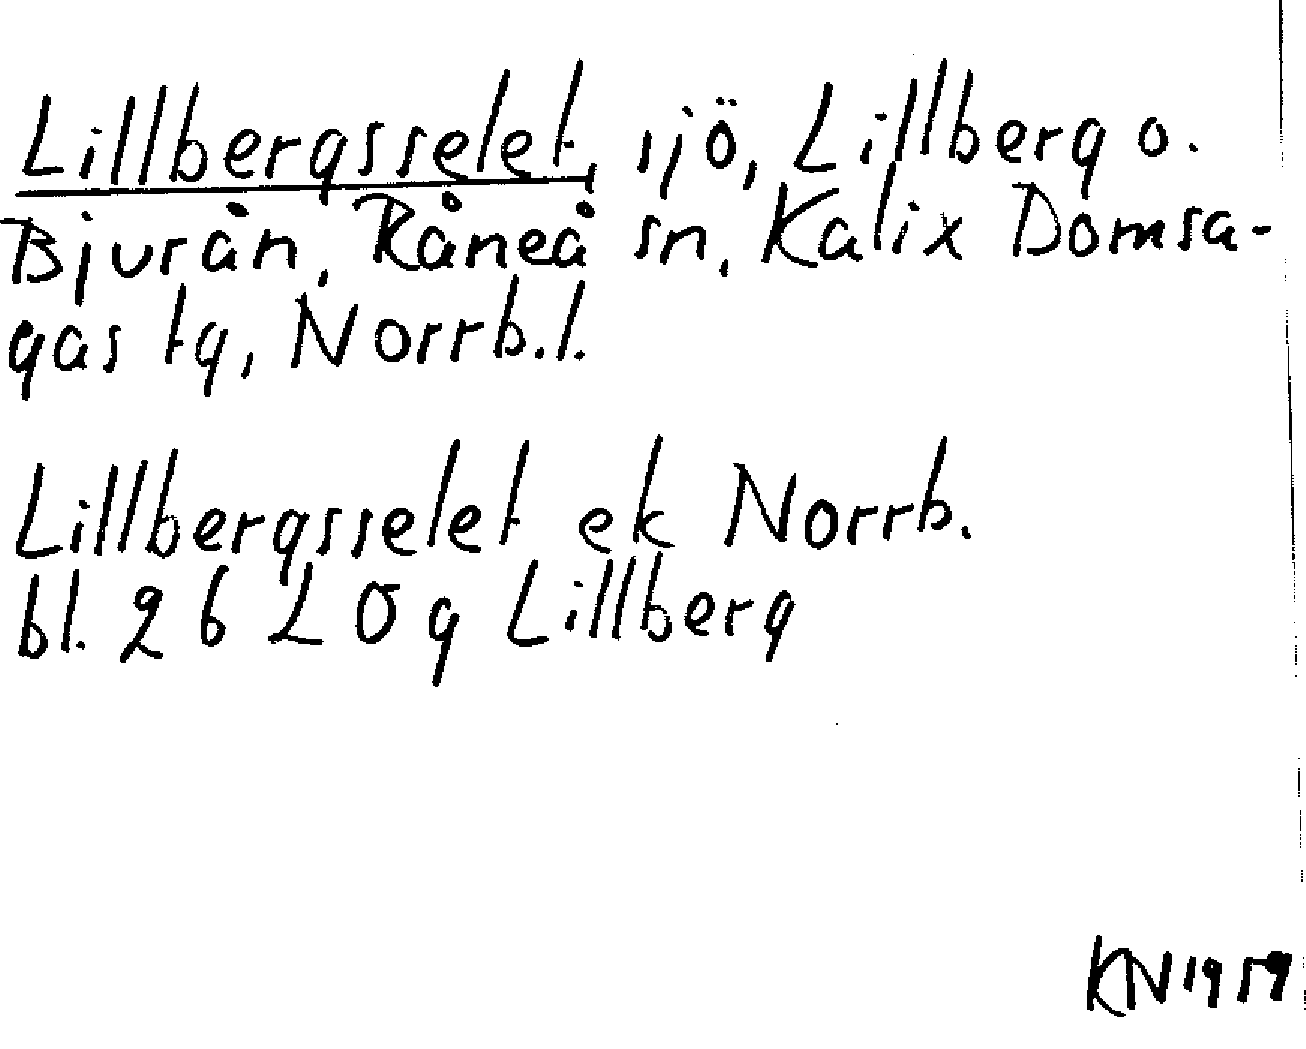 Lillbergsselet, sjö, Lillberg o.
Bjurån, Råneå sn, Kalix Domsa-
gas tg, Norrb.l.
Lillbergsselet ek Norrb.
bl. 26 L 0 g Lillberg
KN 1959